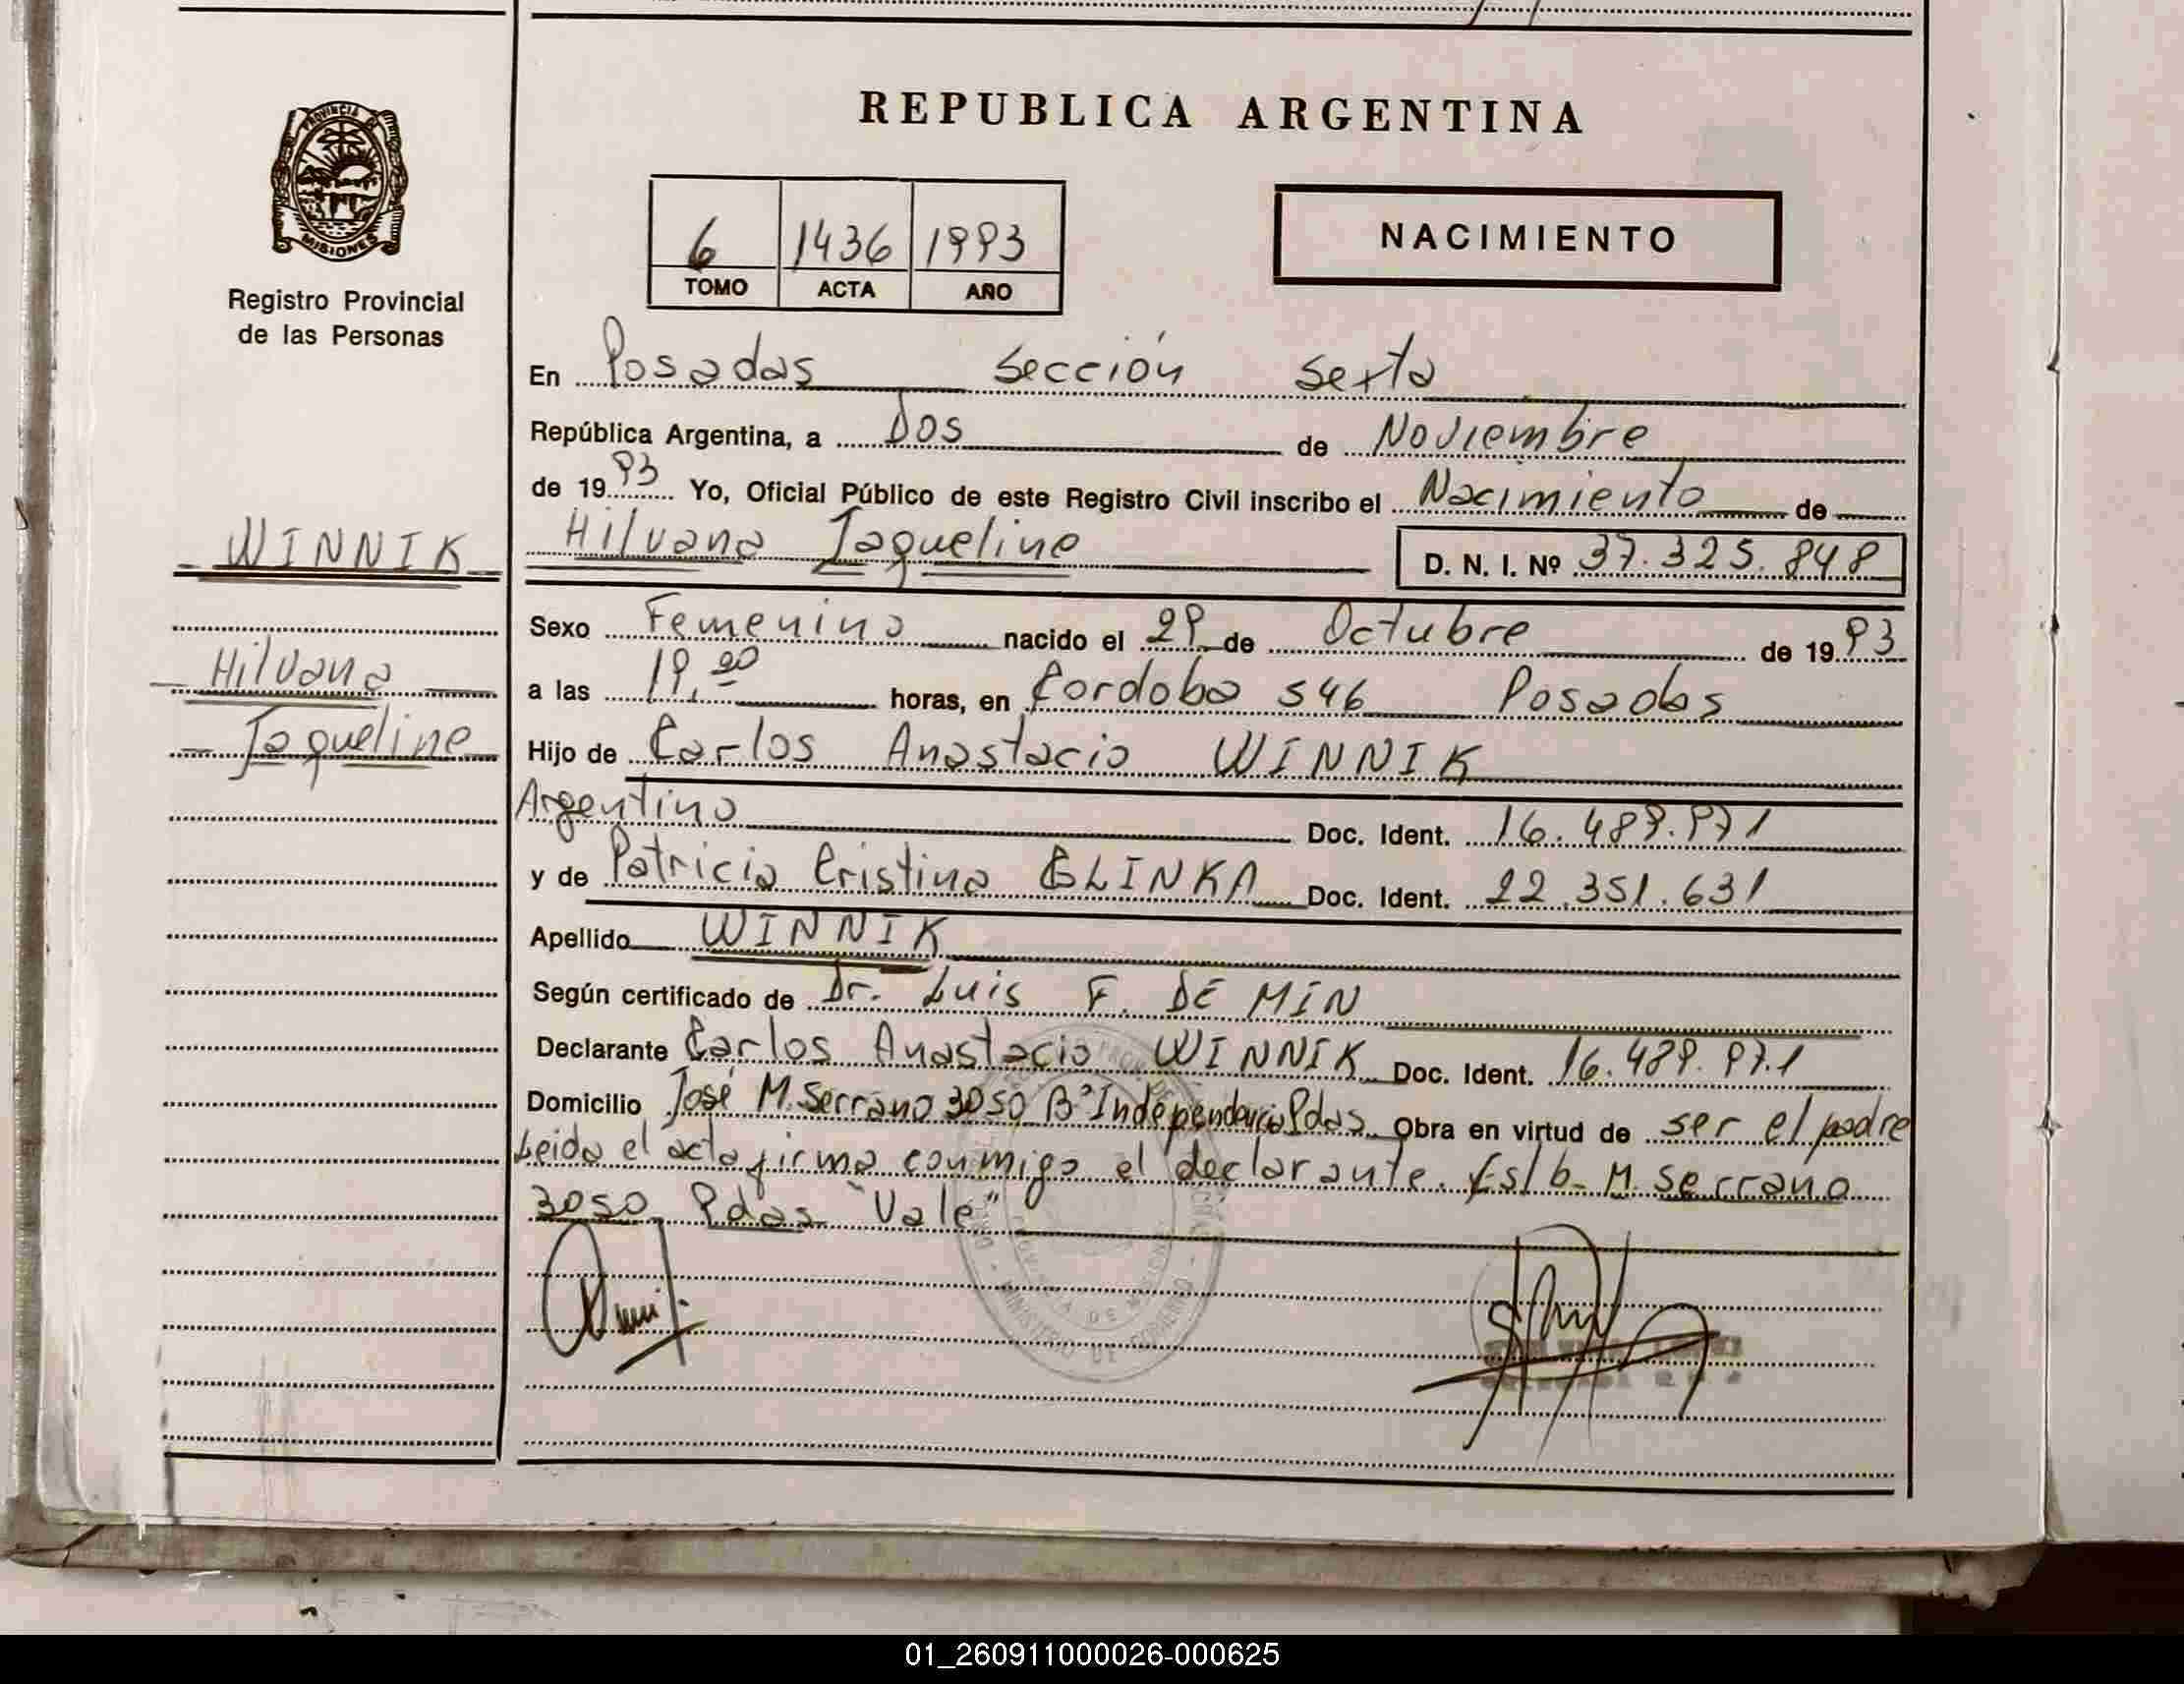 PROVINCIA DE
MISIONES
Registro Provincial
de las Personas
WINNIK
Hilvana
Jaqueline
REPUBLICA ARGENTINA
6 1436 1993
TOMO ACTA AÑO
NACIMIENTO
En Posadas Sección Sexta
República Argentina, a Dos de Noviembre
de 1993 Yo, Oficial Público de este Registro Civil inscribo el Nacimiento de
Hilvana Jaqueline D. N. I. Nº 37.325.848
Sexo Femenino nacido el 29 de Octubre de 1993
a las 19,20 horas, en Cordoba 546 Posadas
Hijo de Carlos Anastacio WINNIK
Argentino Doc. Ident. 16.489.971
y de Patricia Cristina GLINKA Doc. Ident. 22.351.631
Apellido WINNIK
Según certificado de Dr. Luis F. DE MIN
Declarante Carlos Anastacio WINNIK Doc. Ident. 16.489.971
Domicilio José M. Serrano 3050 Bº Independencia Pdas. Obra en virtud de ser el padre
Leida el acta firma conmigo el declarante. Es/b. M. Serrano
3050 Pdas "Vale"
01_260911000026-000625